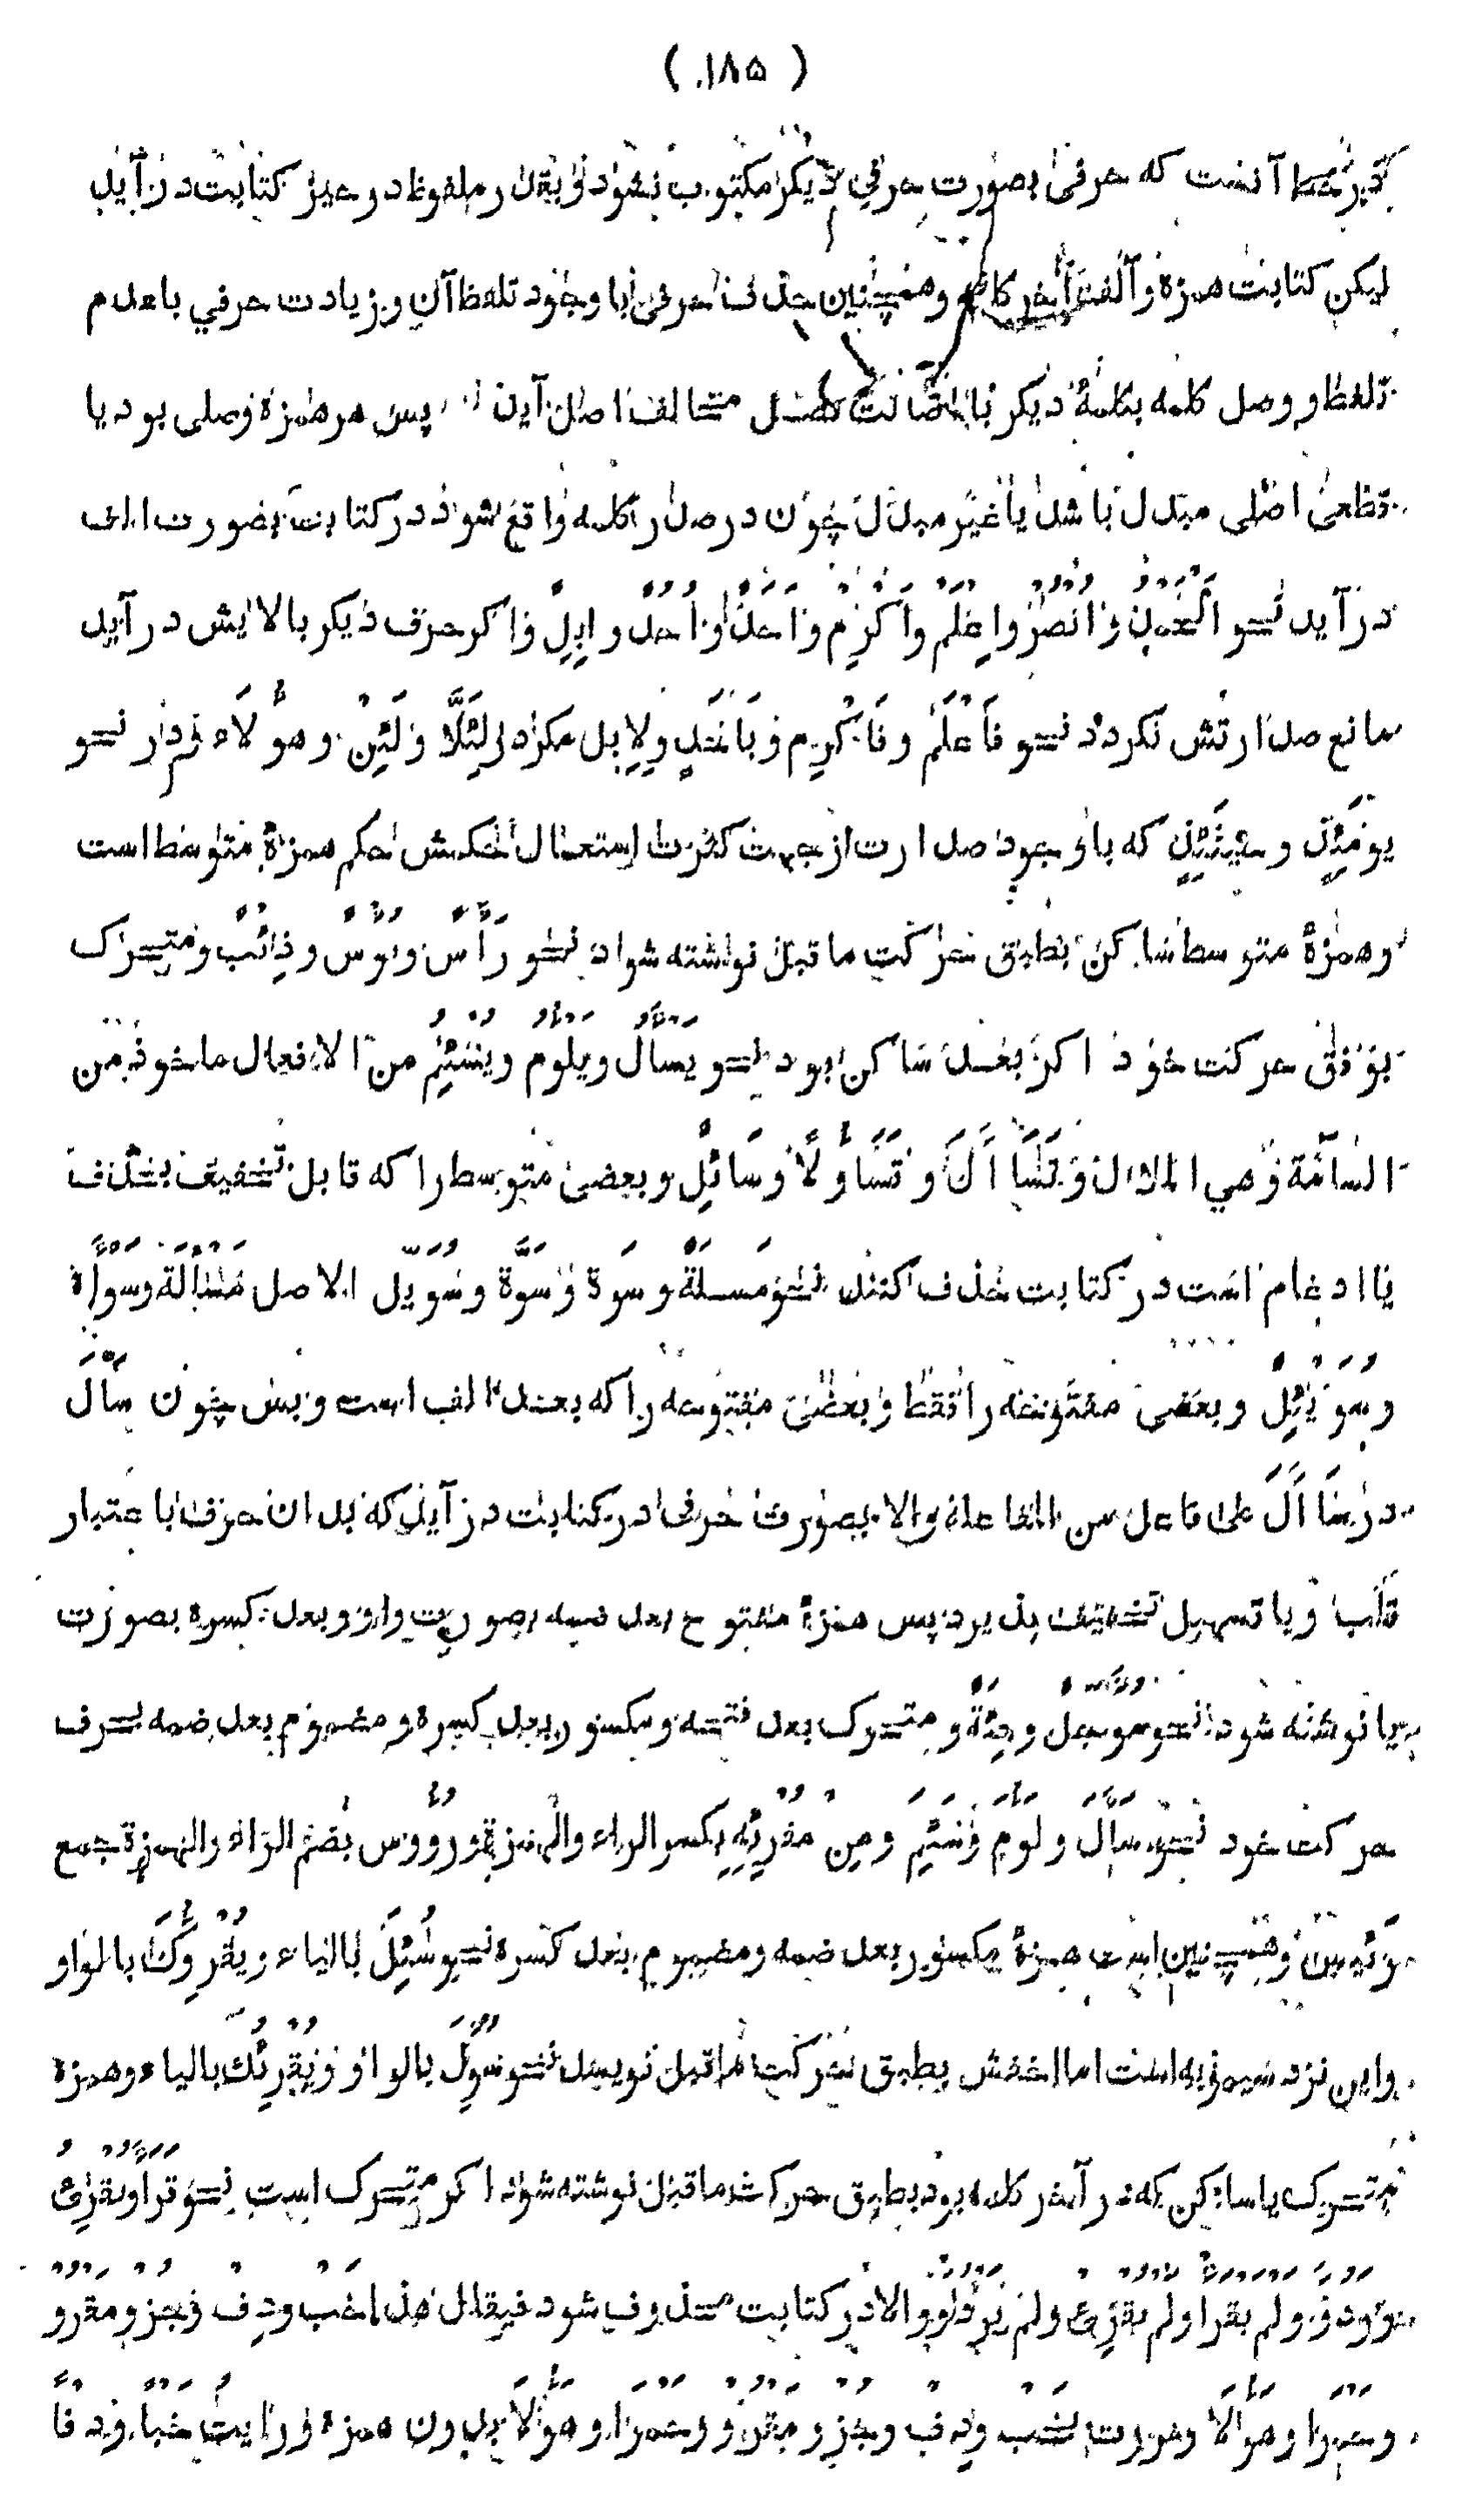 ( ۱۸۵ )
آنست که حرفی بصورت حرفي دیگر مکتوب نشود ملفوظ در حیز کتابت در آید
لیکن کتابت همزه و الف کلمه و همچنین حذف حرفی با وجود تلفظ آن و زیادت حرفي با عدم
تلفظ و وصل کلمه بکلمهٔ دیگر مخالف اصل این پس هر همزهٔ وصلی بود یا
قطعی اصلی مبدل باشد یا غیر مبدل چون در صدر کلمه واقع شود در کتابت بصورت الف
در آید نحو الحمد و انصر و اعلم و اکرم و احد و ابل و اکر حرف دیکر بالایش در آید
مانع صدارتش نکردد نحو فاعلم و فاکرم و باحد و لابل مکر در لئلا و لئن و هؤلاء و در نحو
یومئذ و حینئذ که باوجود صدارت از جهت کثرت استعمال حکمش حکم همزهٔ متوسط است
و همزهٔ متوسط ساکن بطبق حرکت ماقبل نوشته شود نحو رأس و بؤس و ذئب و متحرک
بوفق حرکت خود اکر بعد ساکن بود نحو یسأل و یلؤم و یسئم من الافعال ماخوذ من
السآمة و هي الملال و تساأل و تساؤلا و سائل و بعضی متوسط را که قابل تخفیف بحذف
یا ادغام است در کتابت حذف کنند نحو مسلة و سوة و سوة و سویل الاصل مسألة و سوأة
و سویئل و بعضی مفتوحه را فقط و بعضی مفتوحه را که بعد الف است و بس چون سال
در ساأل علی فاعل من المفاعلة و الا بصورت حرفی در کتابت در آید که بدان حرف باعتبار
قلب و یا تسهیل تخفیف پذیرد پس همزهٔ مفتوح بعد ضمه بصورت واو و بعد کسره بصورت
یا نوشته شود نحو موجل و مئة و متحرک بعد فتحه و مکسور بعد کسره و مضموم بعد ضمه بحرف
حرکت خود نحو سأل و لؤم و سئم و من مقرئه بکسر الراء و الهمزة و رؤوس بضم الراء و الهمزة جمع
و همچنین است همزهٔ مکسور بعد ضمه و مضموم بعد کسره نحو سئل بالیاء و یقرؤک بالواو
و این نزد سیبویه است اما اخفش بطبق حرکت ماقبل نویسد نحو سؤل بالواو و یقرئک بالیاء و همزه
متحرک یا ساکن که در آخر کلمه بود بطبق حرکت ماقبل نوشته شود اکر متحرک است نحو قرأ و یقرئ
و ولم یقرأ ولم یقرئ ولم یردؤ و الا در کتابت محذوف شود فیقال هذا خب و دف و جز و مقرو
و هؤلا و مررت بخب و دف و جز و مقرو و حمرا و هؤلا بدون همزه و رایت خبا و دفا